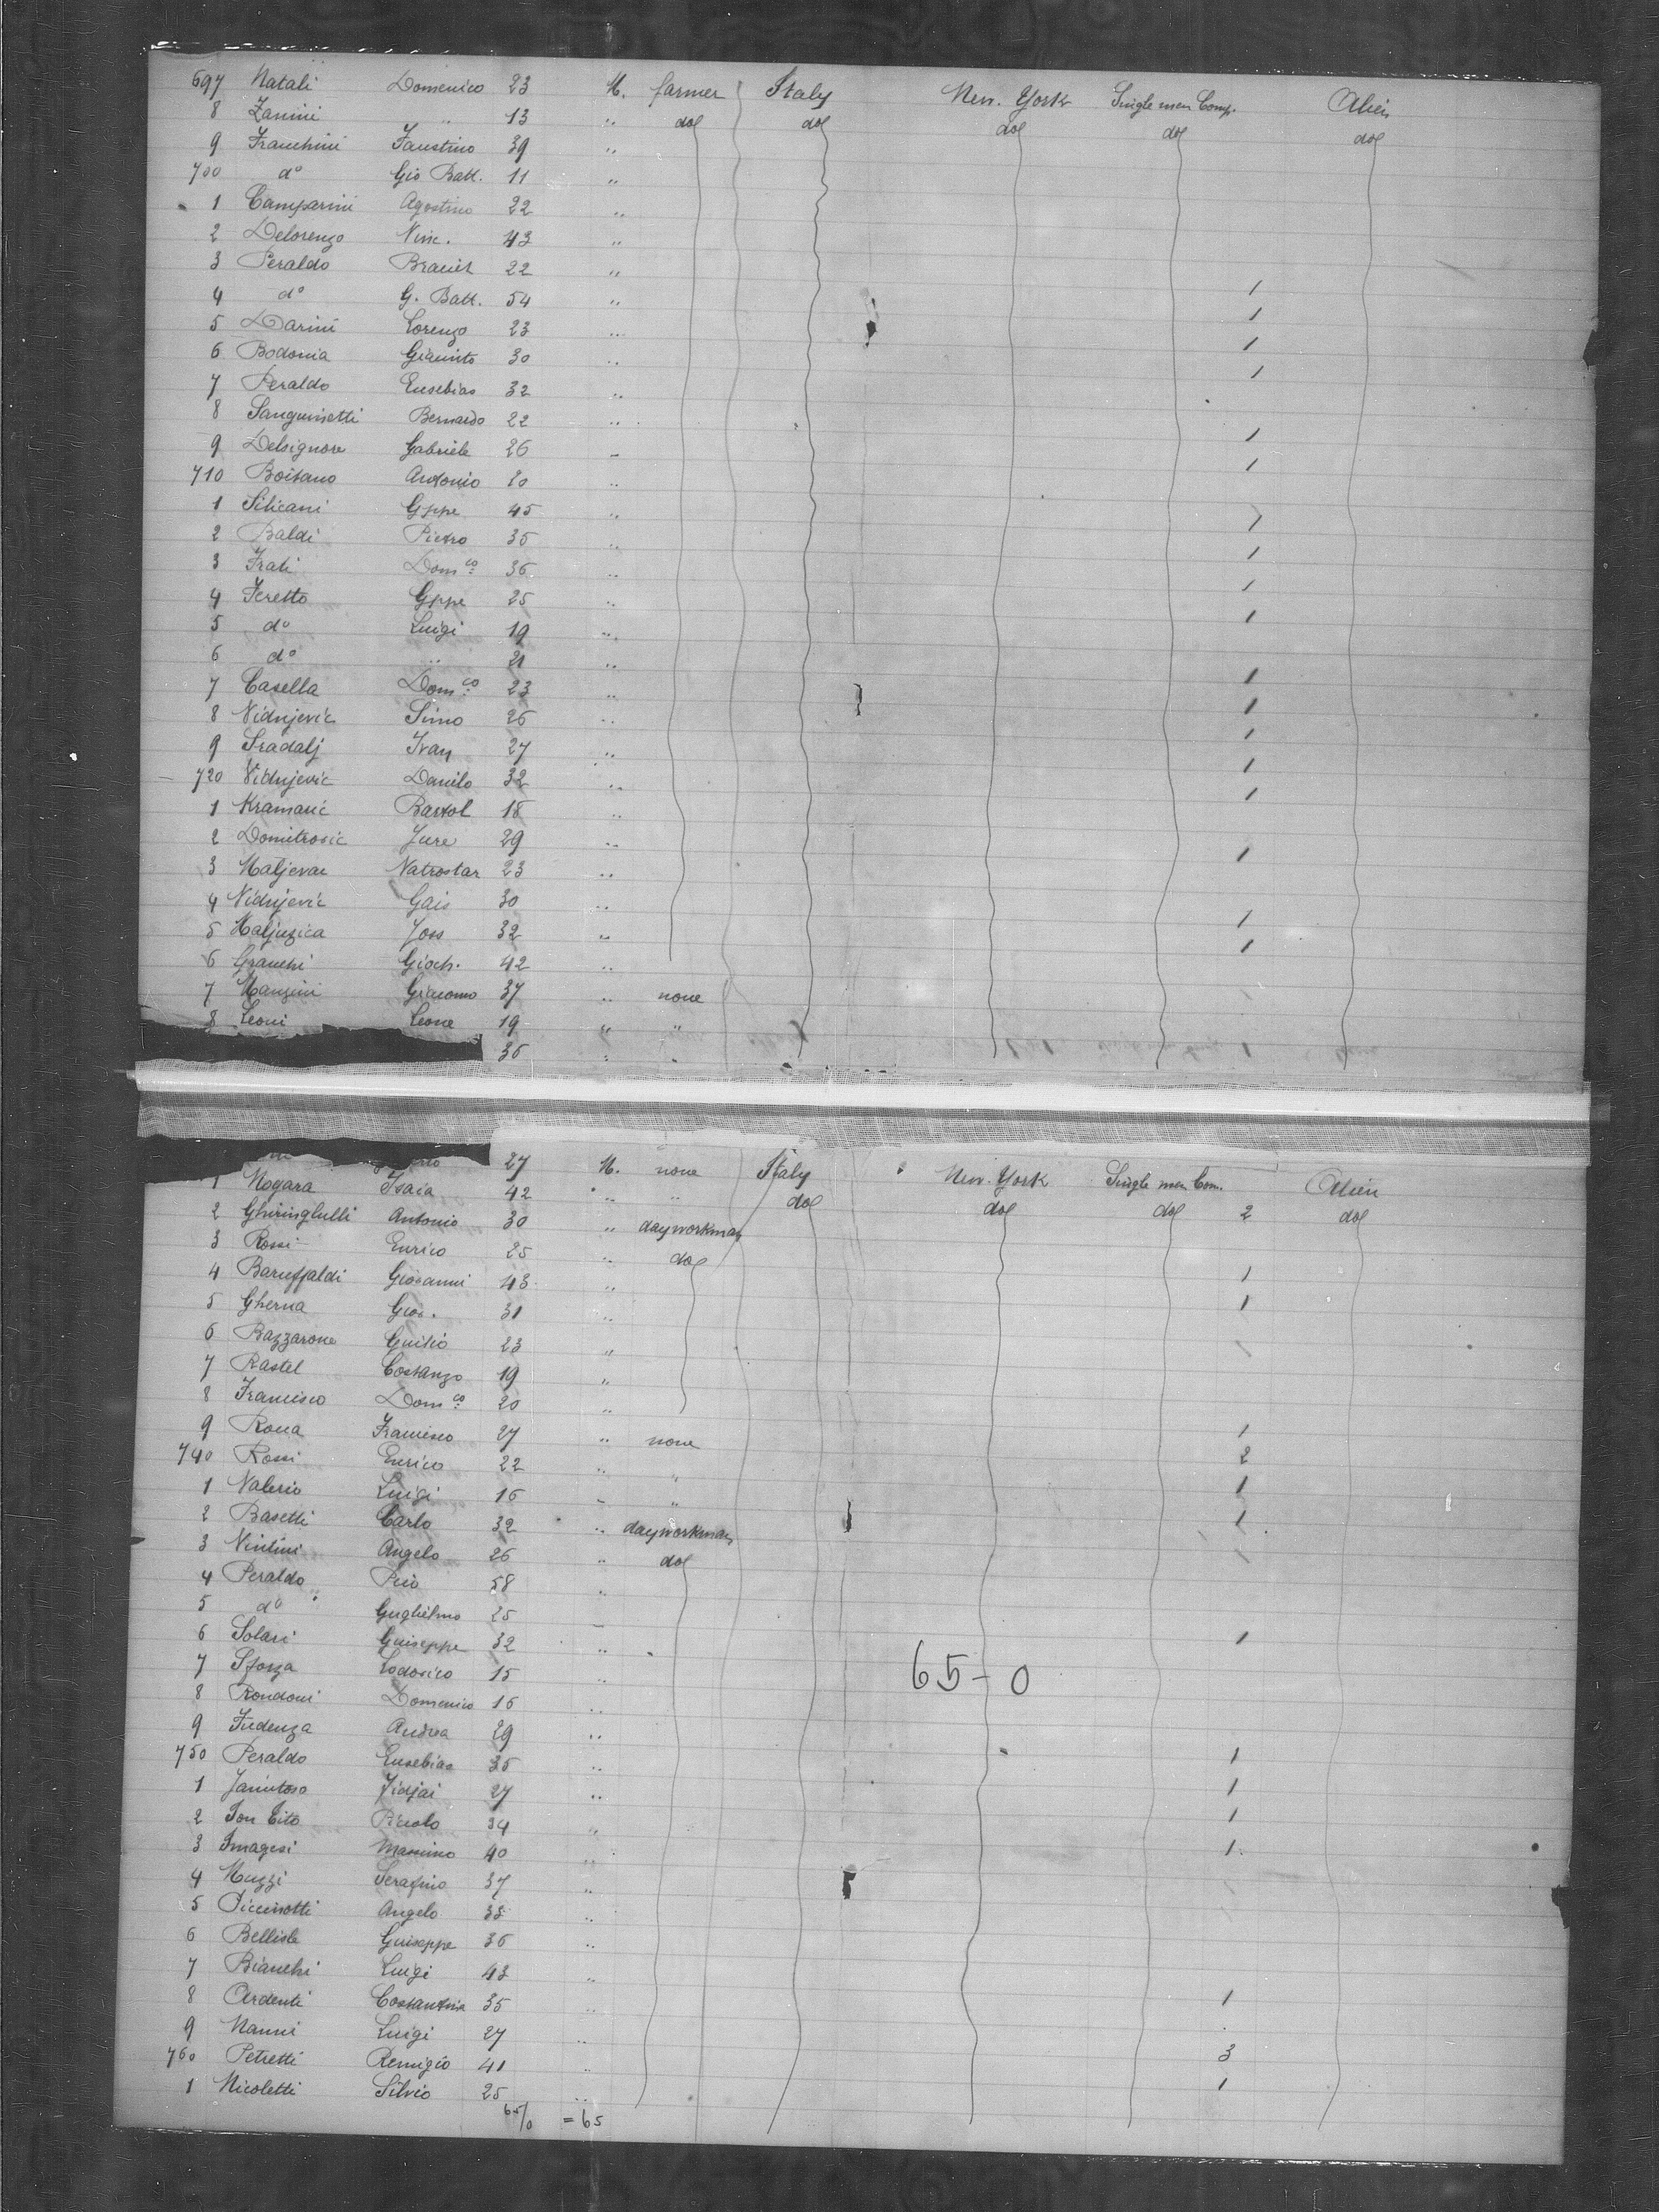 697 Natali Domenico 23 M. farmer Italy New. York Single men Comp. Alien
8 Zanini " 13 " do do do do do
9 Franchini Faustino 39 "
700 do Gio Batt. 11 "
1 Camparini Agostino 22 "
2 Delorenzo Vinc. 43 "
3 Peraldo 22 "
4 do G. Batt. 54 " 1
5 Darini Lorenzo 23 " 1
6 Bodonia Giacinto 30 " 1
7 Peraldo Eusebias 32 " 1
8 Sanguinetti Bernardo 22 "
9 Delsignore Gabriele 26 " 1
710 Boitano Antonio 20 " 1
1 Silicani Gppe 45 "
2 Baldi Pietro 35 " 1
3 Frati Domco 36 " 1
4 Feretto Gppe 25 " 1
5 do Luigi 19 " 1
6 do " 21 "
7 Casella Domco 23 " 1
8 Vidnjevic Simo 26 " 1
9 Sradalj Ivan 27 " 1
720 Vidnjevic Danilo 32 " 1
1 Kramaric Bartol 18 " 1
2 Domitrovic Jure 29 "
3 Maljevac 23 " 1
4 Vidnjevic Gais 30 "
5 Joss 32 " 1
6 Granchi Gioch. 42 " 1
7 Manzini Giacomo 37 " none
8 Leoni Leone 19 " "
36 " " 1
27 M. none Italy New. York Single men Com. Alien
1 Nogara Isaia 42 " " do do do 2 do
2 Ghiringhelli Antonio 30 " dayworkman
3 Rossi Enrico 25 " do
4 Baruffaldi Giovanni 43 " 1
5 Gherna Giov. 31 " 1
6 Bazzarone Guilio 23 "
7 Rastel Costanzo 19 "
8 Francisco Domco 20 "
9 Rona Francisco 27 " none 1
740 Rossi Enrico 22 " " 2
1 Valerio Luigi 16 " " 1
2 Basetti Carlo 32 " dayworkman 1
3 Angelo 26 " do
4 Peraldo Pio 58 "
5 do Guglielmo 25 "
6 Solari Guiseppe 32 " 1
7 Sforza Lodovico 15 " 65-0
8 Rondoni Domenico 16 "
9 Fidenza Andrea 29 "
750 Peraldo Eusebias 35 " 1
1 27 " 1
2 34 " 1
3 Imagesi Massimo 40 " 1
4 Muzzi Serafino 37 "
5 Piccinotti Angelo 38 "
6 Bellisle Guiseppe 36 "
7 Bianchi Luigi 43 "
8 Ardenti Costantina 35 " 1
9 Nanni Luigi 27 "
760 Petretti Remigio 41 " 3
1 Nicoletti Silvio 25 " 1
65/0 = 65